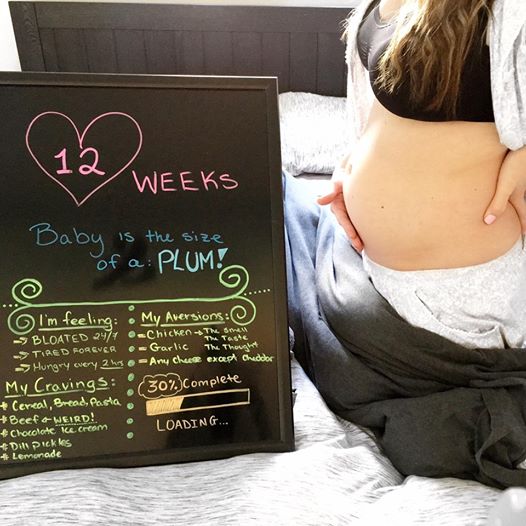 12 WEEKS
Baby is the size
of a: PLUM!
I'm feeling:
→ BLOATED 24/7
→ TIRED FOREVER
→ Hungry every 2 hrs
My Cravings:
# Cereal, Bread, Pasta
# Beef ← WEIRD!
# Chocolate Ice cream
# Dill Pickles
# Lemonade
My Aversions:
- Chicken → The Smell
The Taste
- Garlic The Thought
- Any cheese except cheddar
30% Complete
LOADING...